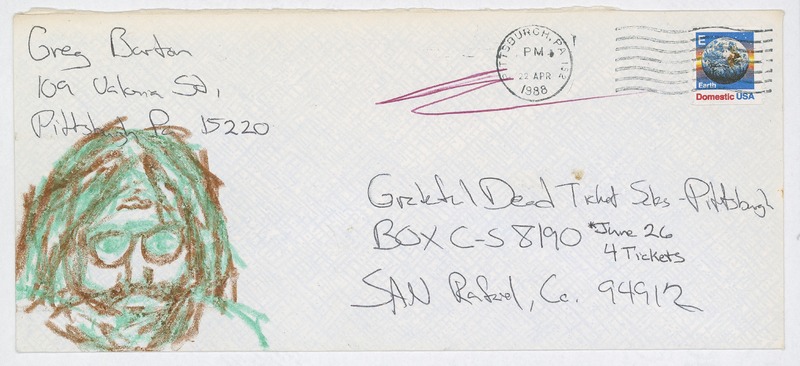 Greg Barton
109 Valonia St,
Pittsburgh Pa 15220
PITTSBURGH, PA 152
PM
22 APR
1988
E
Earth
Domestic USA
Grateful Dead Ticket Sales - Pittsburgh
BOX C-S 8190 *June 26
4 Tickets
SAN Rafael, Ca. 94912